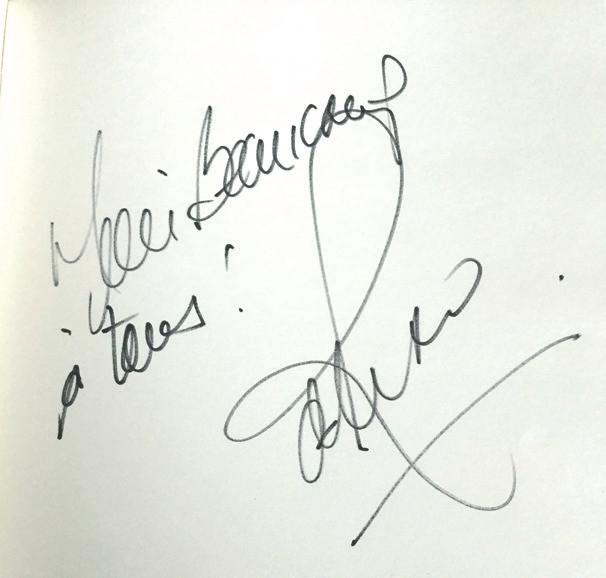 Merci Beaucoup
à tous !